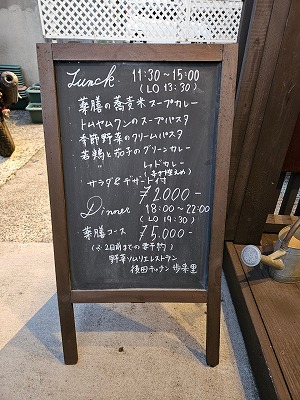 Lunch 11:30~15:00
(LO 13:30)
薬膳の蕎麦米スープカレー
トムヤムクンのスープパスタ
季節野菜のクリームパスタ
若鶏と茄子のグリーンカレー
〃 レッドカレー
(辛さ控えめ)
サラダ&デザート付
¥2000-
Dinner 18:00~22:00
(LO 19:30)
薬膳コース ¥5.000-
(※2日前までの要予約)
野菜ソムリエレストラン
後田キッチン 歩来里